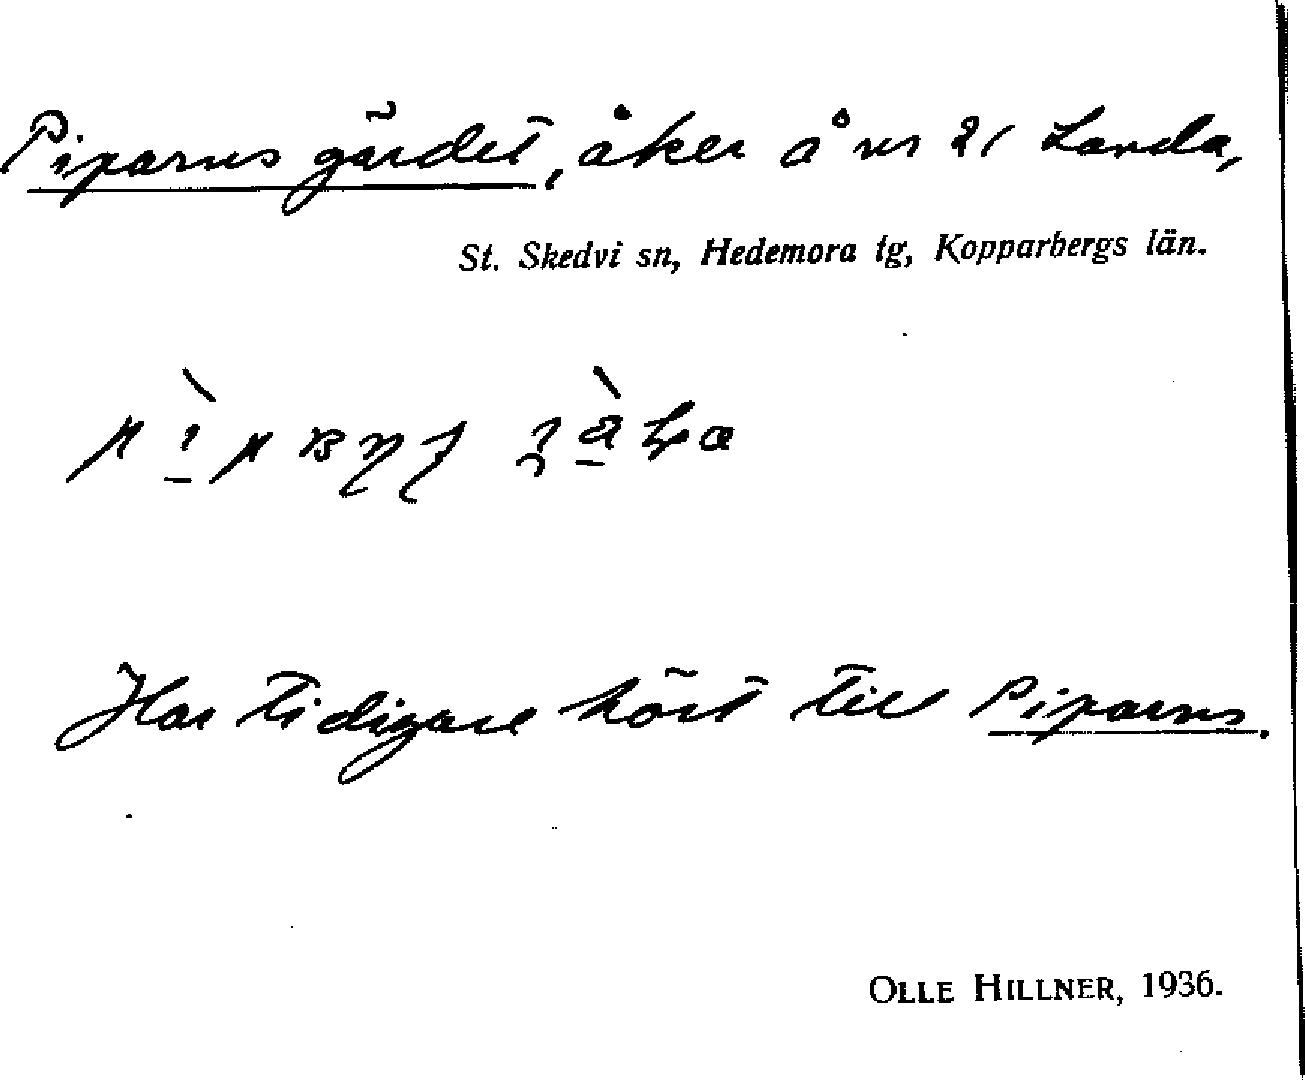 Piparns gärdet, åker å nr 21 Landa,
St. Skedvi sn, Hedemora tg, Kopparbergs län.
Har tidigare hört till Piparns.
OLLE HILLNER, 1936.